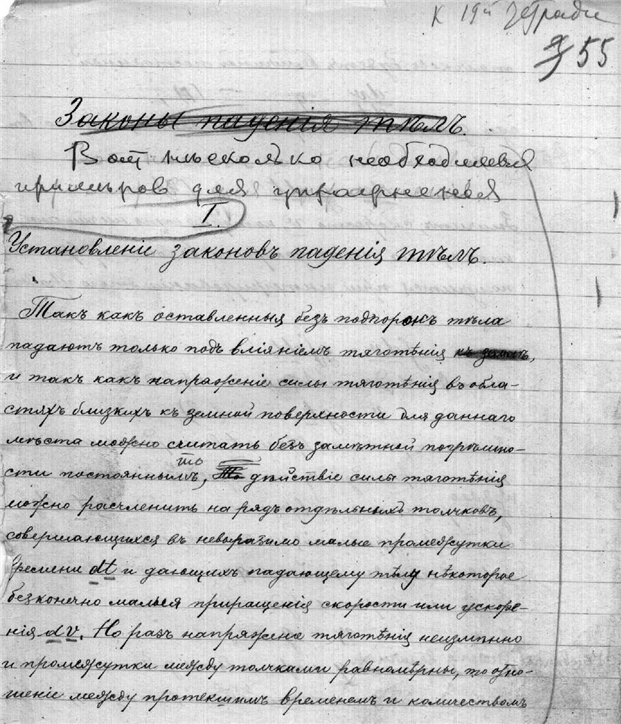 К 19й тетради
55
Законы паденія тѣлъ.
Вот нѣсколько необходимыхъ
примѣров для упражненія
I.
Установленіе законовъ паденія тѣлъ.
Такъ какъ оставленныя безъ подпорокъ тѣла
падаютъ только подъ вліяніемъ тяготѣнія
и такъ какъ напряженіе силы тяготѣнія въ обла-
стяхъ близкихъ къ земной поверхности для даннаго
мѣста можно считать безъ замѣтной погрѣшно-
сти постояннымъ, то дѣйствіе силы тяготѣнія
можно расчленить на рядъ отдѣльныхъ толчковъ,
совершающихся въ невыразимо малые промежутки
времени dt и дающихъ падающему тѣлу нѣкоторое
безконечно малыя приращенія скорости или ускоре-
нія dv. Но разъ напряжение тяготѣнія неизмѣнно
и промежутки между толчками равномѣрны, то отно-
шеніе между протекшимъ временемъ и количествомъ